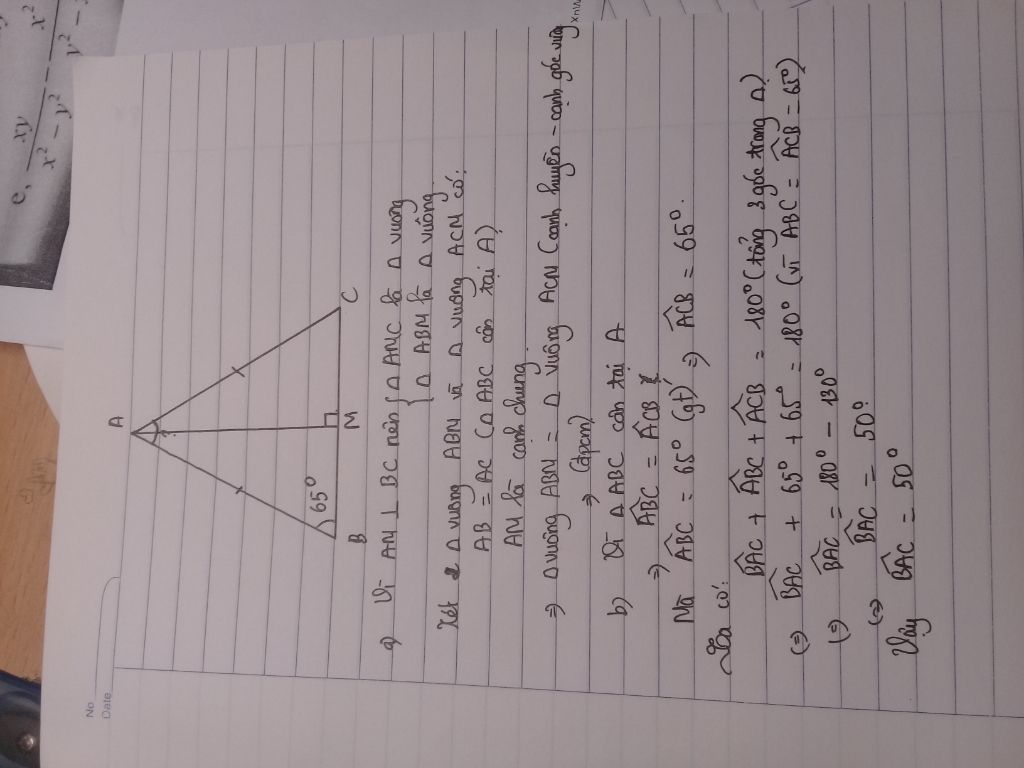 No
Date
e, xy / x² - y² - x² / y² -
A
65°
B
M
C
a) Vì AM ⊥ BC nên { Δ AMC là Δ vuông
{ Δ ABM là Δ vuông
Xét 2 Δ vuông ABM và Δ vuông ACM có:
AB = AC (Δ ABC cân tại A)
AM là cạnh chung
=> Δ vuông ABM = Δ vuông ACM (cạnh huyền - cạnh góc vuông
=> (đpcm)
b) Vì Δ ABC cân tại A
=> ABC^ = ACB^
Mà ABC^ = 65° (gt) => ACB^ = 65°.
Ta có:
BAC^ + ABC^ + ACB^ = 180° (tổng 3 góc trong Δ)
(=) BAC^ + 65° + 65° = 180° (vì ABC^ = ACB^ = 65°)
(=) BAC^ = 180° - 130°
(=) BAC^ = 50°
Vậy BAC^ = 50°